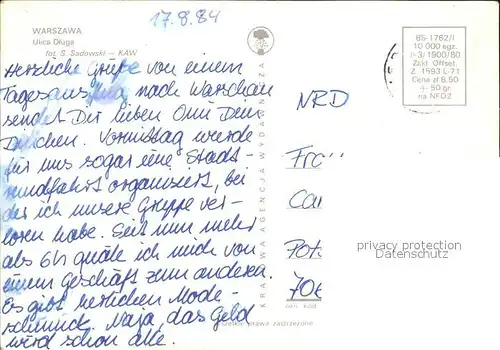 17.8.84
WARSZAWA
Ulica Długa
fot. S. Sadowski — KAW
BS-1762/I
10 000 egz.
I-3/1900/80
Zakł. Offset.
Z. 1593 L-71
Cena zł 6,50
+ 50 gr
na NFOZ
Herzliche Grüße von einem
Tagesausflug nach Warschau
sendet Dir lieben Omi Dein
Vormittag wurde
für uns sogar eine Stadt-
rundfahrt organisiert, bei
der ich unsere Gruppe ver-
loren habe. Seit nun mehr
als 6h quäle ich mich von
einem Geschäft zum anderen.
Es gibt herrlichen Mode-
schmuck. Naja, das Geld
wird schon alle.
KRAJOWA AGENCJA WYDAWNICZA
NRD
Fra
Car
Pot
706
privacy protection
watermark for DELCAMPE.NET
wszelkie prawa zastrzeżone